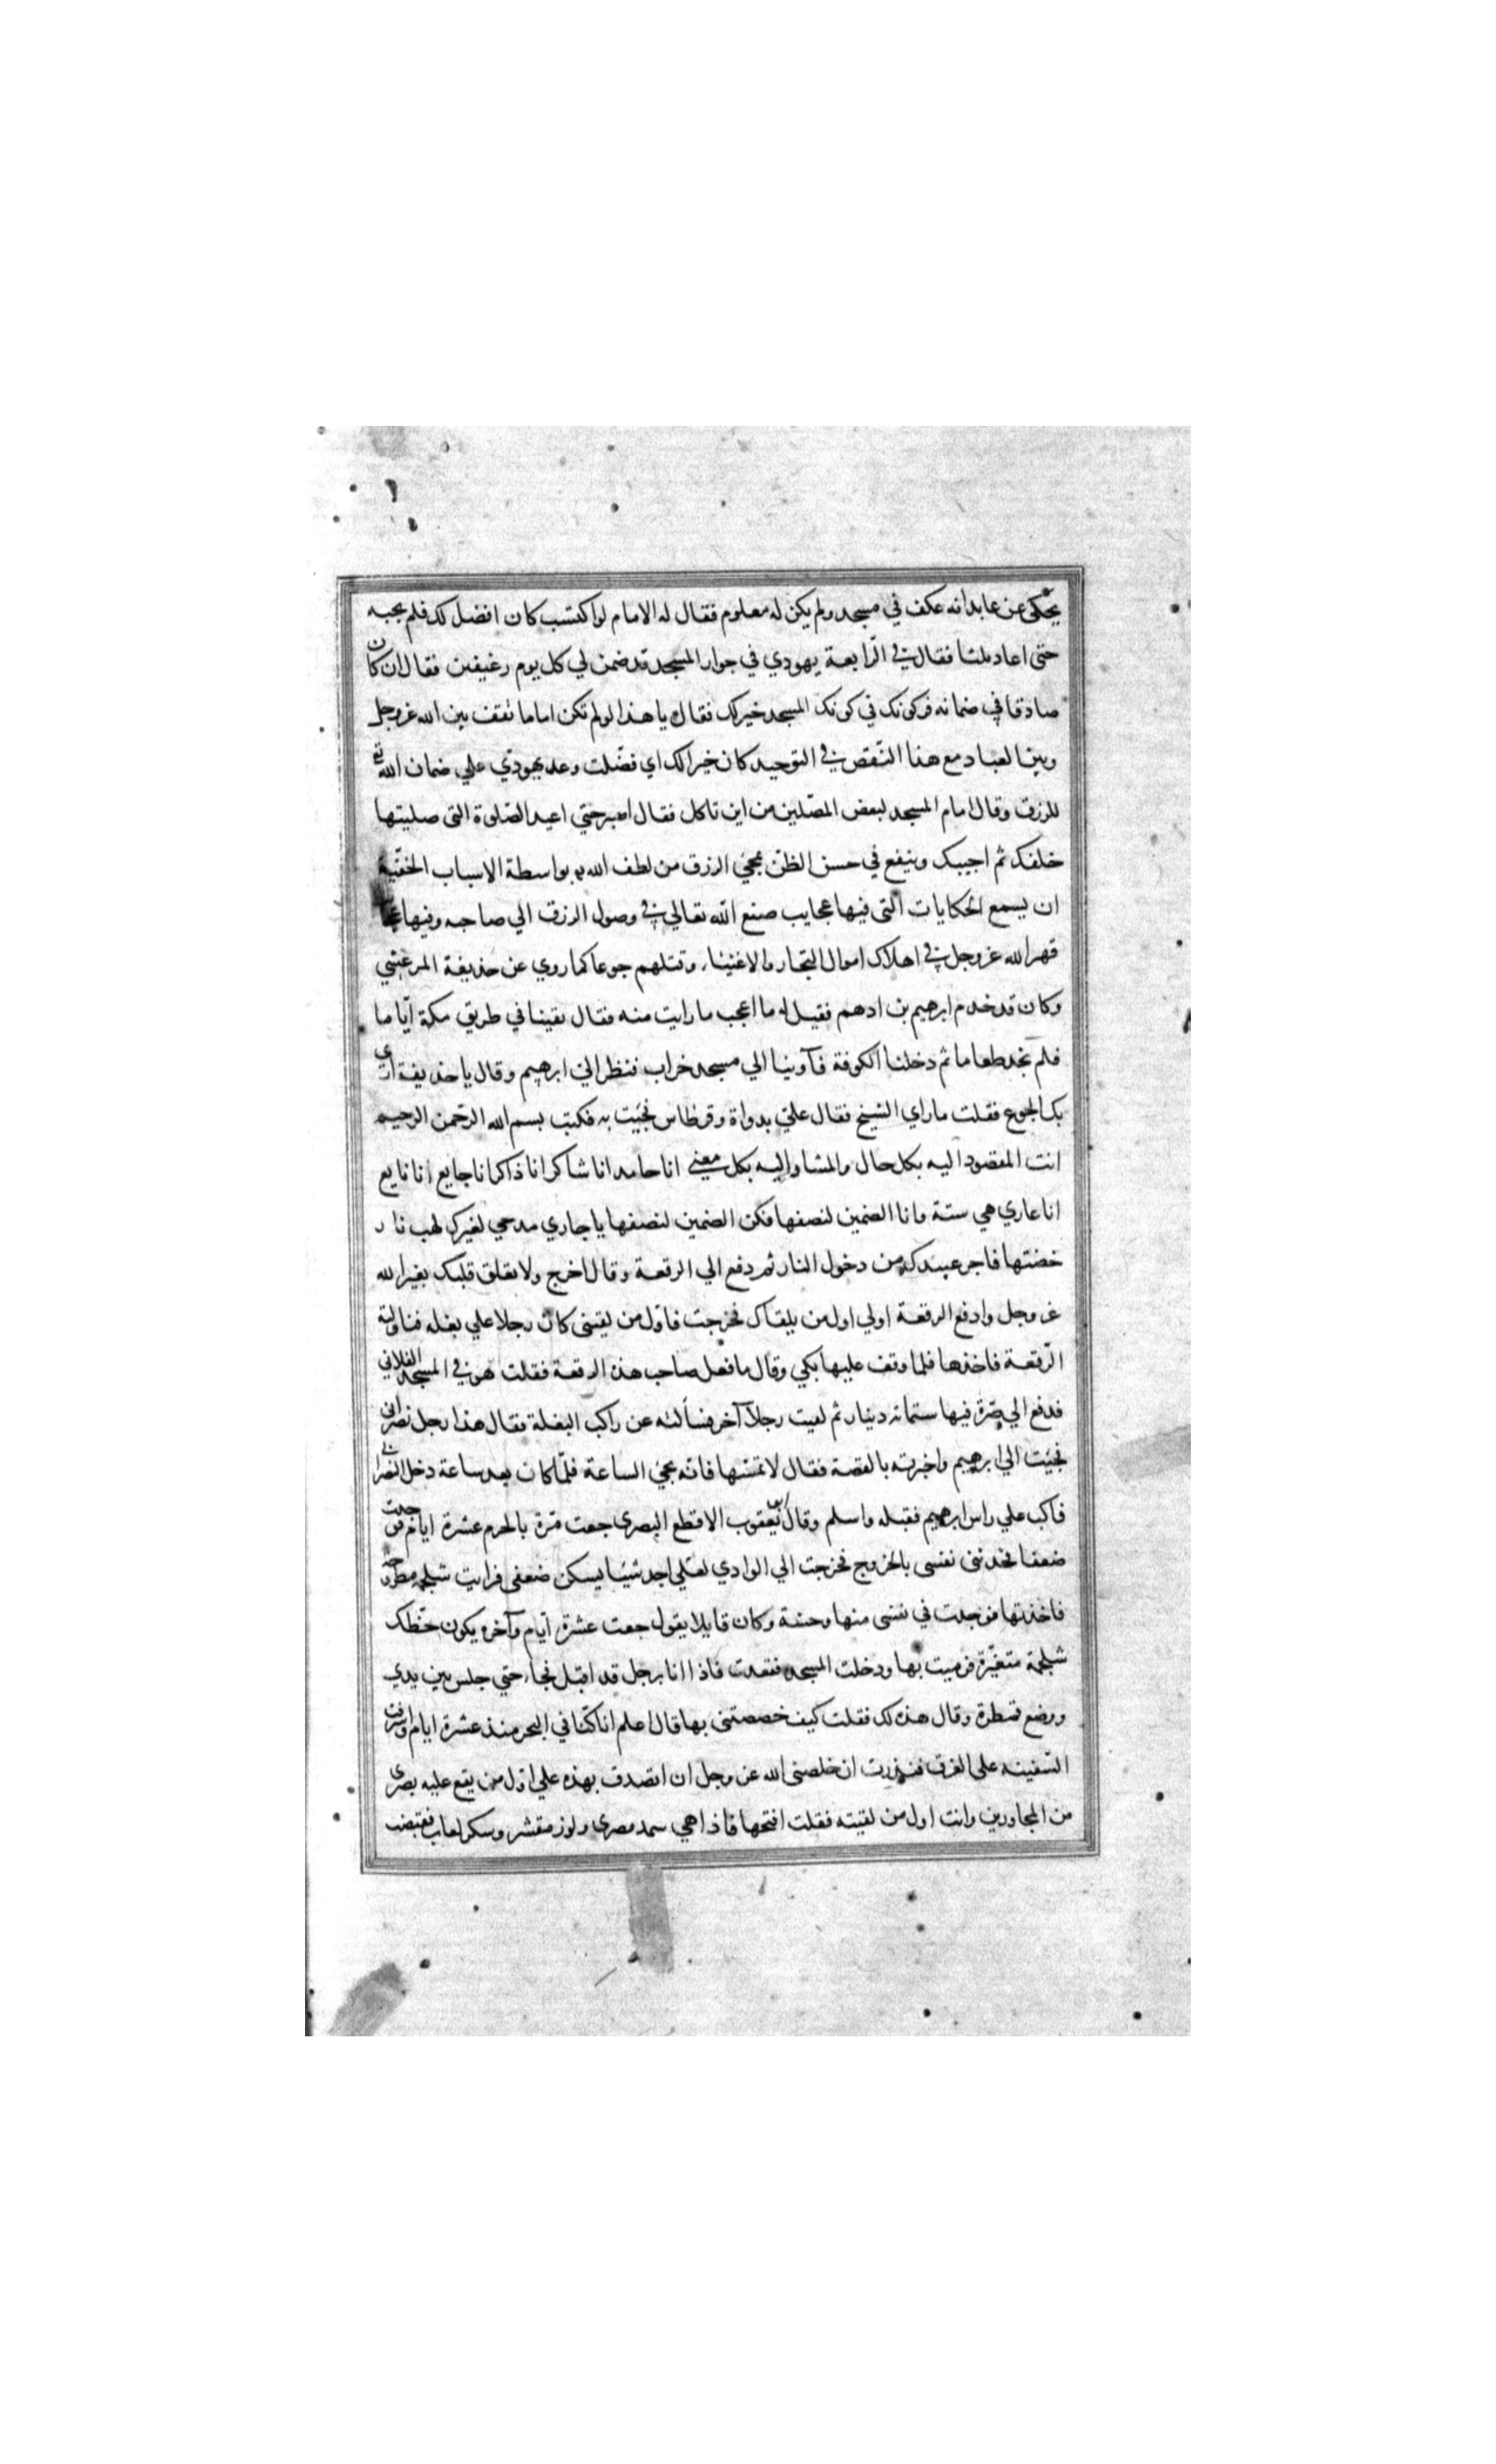 يحكى عن عابد انه عكف في مسجد ولم يكن له معلوم فقال له الامام لو اكتسب كان افضل لك فلم يجبه
حتى اعاد ثلثا فقال في الرّابعة يهودي في جوار المسجد قد ضمن لي كل يوم رغيفين فقال ان كان
صادقا في ضمانه فركونك في كونك المسجد خير لك فقال يا هذا لو لم تكن اماما تقف بين الله عز وجل
وبين العباد مع هذا النّقص في التوحيد كان خيرا لك اي فضّلت وعد يهودي علي ضمان الله تع
للرزق وقال امام المسجد لبعض المصّلين من اين تاكل فقال اصبر حتي اعيد الصّلوة التي صليتها
خلفك ثم اجيبك وينفع في حسن الظن بمجئ الرزق من لطف الله به بواسطة الاسباب الخفيّة
ان يسمع الحكايات التي فيها عجايب صنع الله تعالي في وصول الرزق الي صاحبه وفيها عجا
قهر الله عز وجل في اهلاك اموال التجار والاغنياء وقتلهم جوعا كما روي عن حذيفة المرعشي
وكان قد خدم ابرهيم بن ادهم فقيل له ما اعجب ما رايت منه فقال بقينا في طريق مكة ايّاما
فلم نجد طعاما ثم دخلنا الكوفة فآوينا الي مسجد خراب فنظر الي ابرهيم وقال يا حذيفة اري
بك الجوع فقلت ما راي الشيخ فقال علي بدواة وقرطاس فجئت به فكتب بسم الله الرحمن الرحيم
انت المقصود اليه بكل حال والمشار اليه بكل معني انا حامد انا شاكر انا ذاكر انا جايع انا نايع
انا عاري هي ستة وانا الضمين لنصفها فكن الضمين لنصفها يا جاري مدحي لغيرك لهب نار
خضتها فاجر عبيدك من دخول النار ثم دفع الي الرقعة وقال اخرج ولا تعلق قلبك بغير الله
عز وجل وادفع الرقعة اولي اول من يلقاك فخرجت فاول من لقيني كان رجلا علي بغلة فناولته
الرّقعة فاخذها فلما وقف عليها بكي وقال ما فعل صاحب هذه الرقعة فقلت هو في المسجد الفلاني
فدفع الي صرّة فيها ستمائه دينار ثم لقيت رجلا آخر فسألته عن راكب البغلة فقال هذا رجل نصراني
فجئت الي ابرهيم واخبرته بالقصة فقال لا تمسّها فانه يجئ الساعة فلمّا كان بعد ساعة دخل النصراني
فاكب علي راس ابرهيم فقبله واسلم وقال ابو يعقوب الاقطع البصري جعت مرّة بالحرم عشرة ايام فوجدت
ضعفا فحدثتني نفسي بالخروج فخرجت الي الوادي لعلي اجد شيئا يسكن ضعفي فرايت شلجمة مطروحة
فاخذتها فوجدت في نفسي منها وحشة وكان قايلا يقول جعت عشرة ايّام وآخره يكون حظّك
شلجمة متغيّرة فرميت بها ودخلت المسجد فقعدت فاذا انا برجل قد اقبل فجاء حتي جلس بين يدي
ووضع قمطرة وقال هذه لك فقلت كيف خصصتني بها قال اعلم انا كنّا في البحر منذ عشرة ايام واشرفت
السّفينه علي الغرق فنذرت ان خلصني الله عز وجل ان اتصدق بهذه علي اول من يقع عليه بصري
من المجاورين وانت اول من لقيته فقلت افتحها فاذا هي سمد مصري ولوز مقشر وسكر لعاب فقبضت